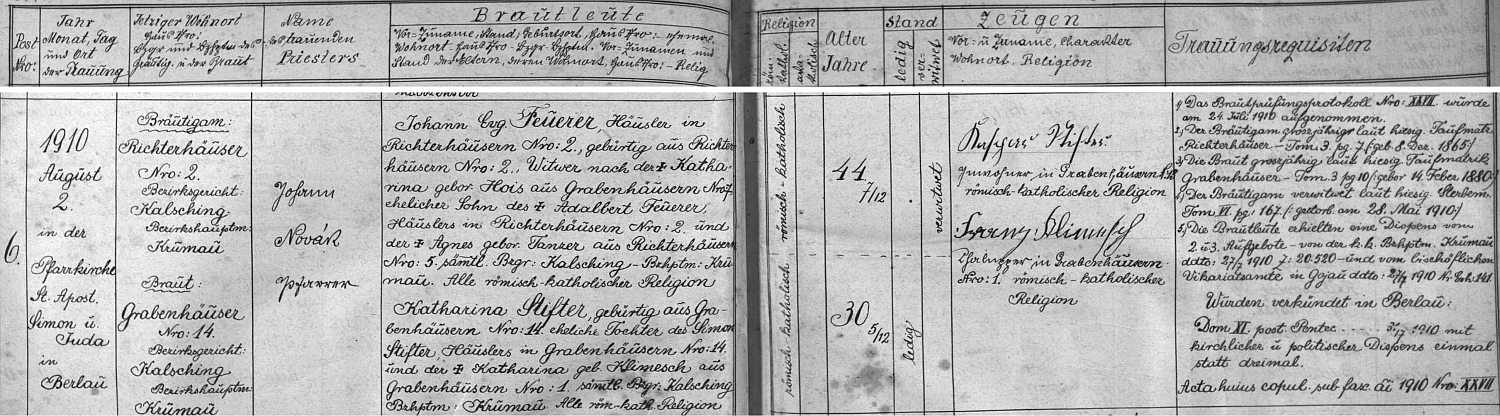 Post Nro:
Jahr
Monat, Tag
und Ort
der Trauung
Jetziger Wohnort
Haus Nro:
des
Bräutig. u der Braut
Name
des trauenden
Priesters
Brautleute
Vor= Zuname, Stand, Geburtsort, Haus Nro:
Wohnort Haus Nro- Bzgr Vor= Zunamen und
Stand der Eltern, deren Wohnort, Haus Nro:- Relig
Religion
röm. kathol.
Alter
Jahre
Stand
ledig
verwitwet
Zeugen
Vor= u Zuname, Charakter
Wohnort, Religion
Trauungsrequisiten
6.
1910
August
2.
in der
Pfarrkirche
St. Apost.
Simon u.
Juda
in
Berlau
Bräutigam:
Richterhäuser
Nro: 2.
Bezirksgericht:
Kalsching
Bezirkshauptm:
Krumau
Braut:
Grabenhäuser
Nro: 14.
Bezirksgericht:
Kalsching
Bezirkshauptm:
Krumau
Johann
Novák
Pfarrer
Johann Ev. Feuerer, Häusler in
Richterhäusern Nro: 2., gebürtig aus Richter
häusern Nro: 2., Witwer nach der ✝ Katha-
rina gebor. Hois aus Grabenhäusern Nro 7.
ehelicher Sohn des ✝ Adalbert Feuerer,
Häuslers in Richterhäusern Nro: 2. und
der ✝ Agnes gebor. Tanzer aus Richterhäusern
Nro: 5. sämtl. Bzgr: Kalsching - Bzhptm: Kru-
mau. Alle römisch-katholischer Religion
Katharina Stifter, gebürtig aus Gra-
benhäusern Nro: 14. eheliche Tochter des Simon
Stifter, Häuslers in Grabenhäusern Nro: 14.
und der ✝ Katharina geb. Klimesch aus
Grabenhäusern Nro: 1. sämtl. Bzgr: Kalsching
Bzhptm: Krumau. Alle röm-kath. Religion
römisch-katholisch
römisch-katholisch
44
7/12
30
5/12
verwitwet
ledig
Kaspar Stifter
Inwohner in Grabenhäusern
römisch-katholischer Religion
Franz Klimesch
Chalupper in Grabenhäusern
Nro: 1. römisch-katholischer
Religion
1) Das Brautprüfungsprotokoll Nro: XXVII. wurde
am 24. Juli 1910 aufgenommen.
2) Der Bräutigam grossjährig laut hiesig. Taufmatr.
Richterhäuser - Tom. 3. pg. 7 /: geb. 8. Dez. 1865 :/
3) Die Braut grossjährig laut hiesig Taufmatrik
Grabenhäuser - Tom. 3 pg 10 /: gebor 14. Feber 1880 :/
4) Der Bräutigam verwitwet laut hiesig. Sterbem.
Tom VI. pg: 167. /: gestorb. am 28. Mai 1910 :/
5) Die Brautleute erhielten eine Dispens vom
2 u 3. Aufgebote - von der k. k. Bzhptm. Krumau
ddto: 27/7 1910 Z: 20.520 - und vom bischöflichen
Vikariatsamte in Gojau ddto: 27/7 1910 Nr Exh: 141.
Wurden verkündet in Berlau:
Dom XI. post Pentec 1910 mit
kirchlicher u politischer Dispens einmal
statt dreimal.
Acta huius copul. sub fasc. ai 1910 Nro: XXVII